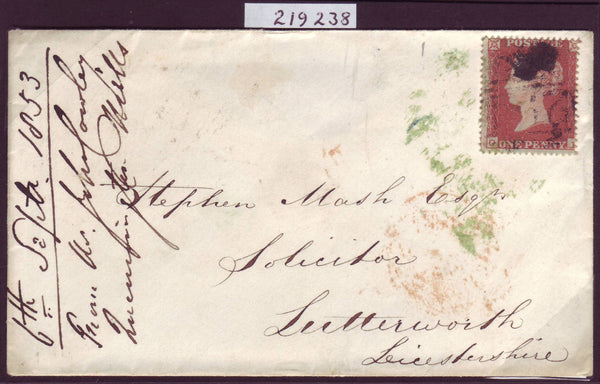 219238
POSTAGE
ONE PENNY
Stephen Mash Esqr
Solicitor
Lutterworth
Leicestershire
6th Septr. 1853
From Mr. John Cowley
Mills